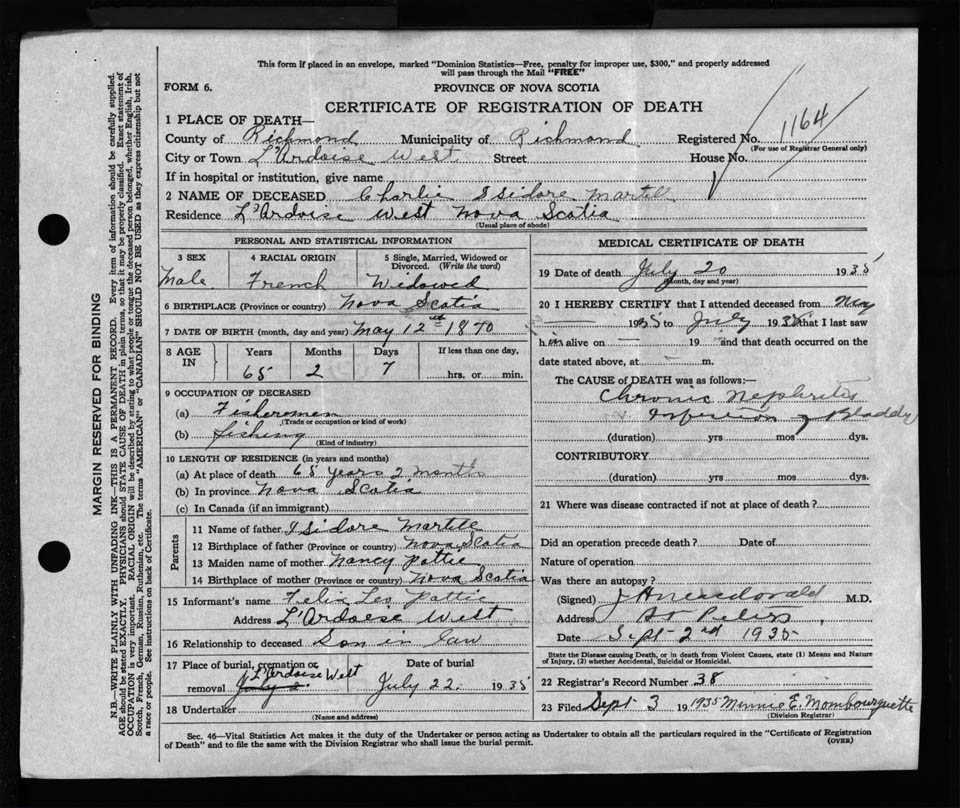 This form if placed in an envelope, marked "Dominion Statistics—Free, penalty for improper use, $300," and properly addressed
will pass through the Mail "FREE"
FORM 6.
PROVINCE OF NOVA SCOTIA
CERTIFICATE OF REGISTRATION OF DEATH
1 PLACE OF DEATH—
County of Richmond Municipality of Richmond Registered No. 1164
(For use of Registrar General only)
City or Town L'Ardoise West Street House No.
If in hospital or institution, give name
2 NAME OF DECEASED Charlie Isidore Martell
Residence L'Ardoise West Nova Scotia
(Usual place of abode)
PERSONAL AND STATISTICAL INFORMATION
3 SEX 4 RACIAL ORIGIN 5 Single, Married, Widowed or
Divorced. (Write the word)
Male French Widowed
6 BIRTHPLACE (Province or country) Nova Scotia
7 DATE OF BIRTH (month, day and year) May 12th 1870
8 AGE IN Years Months Days If less than one day,
65 2 7 hrs. or min.
9 OCCUPATION OF DECEASED
(a) Fishermen
(Trade or occupation or kind of work)
(b) fishing
(Kind of industry)
10 LENGTH OF RESIDENCE (in years and months)
(a) At place of death 65 years 2 months
(b) In province Nova Scotia
(c) In Canada (if an immigrant)
Parents
11 Name of father Isidore Martell
12 Birthplace of father (Province or country) Nova Scotia
13 Maiden name of mother Nancy Pattie
14 Birthplace of mother (Province or country) Nova Scotia
15 Informant's name Felix Leo Pattie
Address L'Ardoise West
16 Relationship to deceased Son in law
17 Place of burial, cremation or Date of burial
removal L'Ardoise West July 22. 1935
18 Undertaker
(Name and address)
MEDICAL CERTIFICATE OF DEATH
19 Date of death July 20 1935
(Month, day and year)
20 I HEREBY CERTIFY that I attended deceased from
1935 to July 1935 that I last saw
h im alive on — 19 — and that death occurred on the
date stated above, at — m.
The CAUSE OF DEATH was as follows:—
Chronic Nephritis
Infection of Bladder
(duration) yrs mos dys.
CONTRIBUTORY
(duration) yrs. mos. dys.
21 Where was disease contracted if not at place of death?
Did an operation precede death? Date of
Nature of operation
Was there an autopsy?
(Signed) M.D.
Address St Peters
Date Sept 2nd 1935
State the Disease causing Death, or in death from Violent Causes, state (1) Means and Nature
of Injury, (2) whether Accidental, Suicidal or Homicidal.
22 Registrar's Record Number 38
23 Filed Sept 3 1935 Minnie E. Mombourquette
(Division Registrar)
Sec. 46—Vital Statistics Act makes it the duty of the Undertaker or person acting as Undertaker to obtain all the particulars required in the "Certificate of Registration
of Death" and to file the same with the Division Registrar who shall issue the burial permit.
(OVER)
MARGIN RESERVED FOR BINDING
N.B.—WRITE PLAINLY WITH UNFADING INK—THIS IS A PERMANENT RECORD. Every item of information should be carefully supplied.
AGE should be stated EXACTLY. PHYSICIANS should STATE CAUSE OF DEATH in plain terms, so that it may be properly classified. Exact statement of
OCCUPATION is very important. RACIAL ORIGIN will be described by stating to what people or tongue the deceased person belonged, whether English, Irish,
Scotch, French, German, Russian, Ruthenian, etc. The terms "AMERICAN" or "CANADIAN" SHOULD NOT BE USED as they express citizenship but not
a race or people. See instructions on back of Certificate.